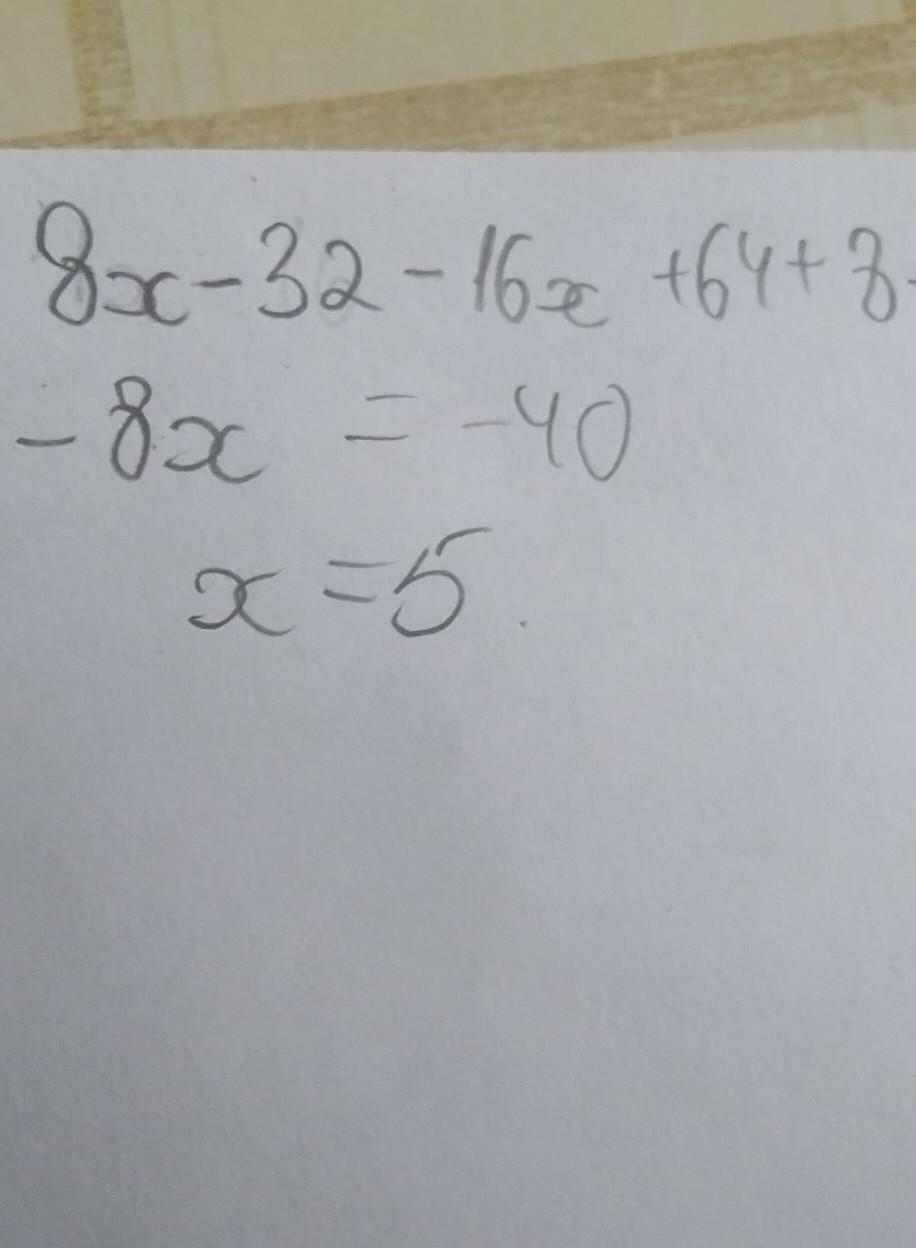 8x - 32 - 16x + 64 + 8
- 8x = -40
x = 5.